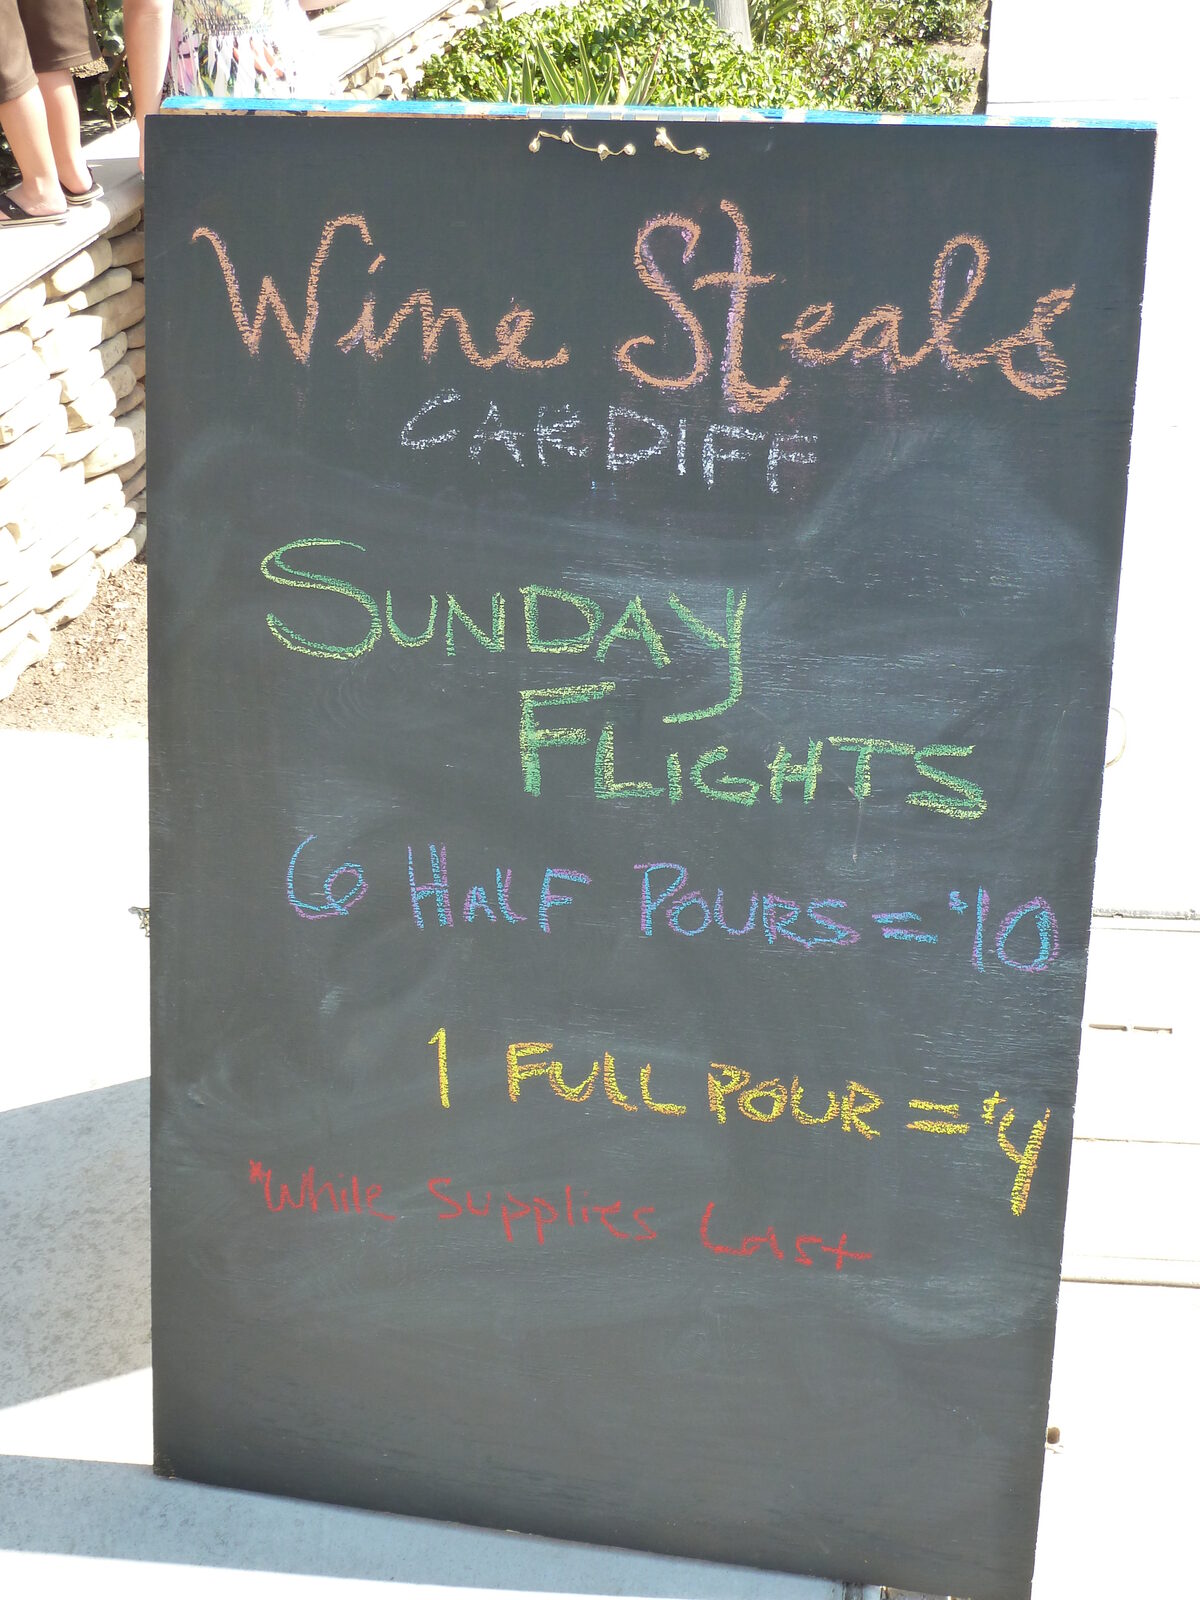 Wine Steals
CARDIFF
SUNDAY
FLIGHTS
6 HALF POURS = $10
1 FULL POUR = $4
*While Supplies Last